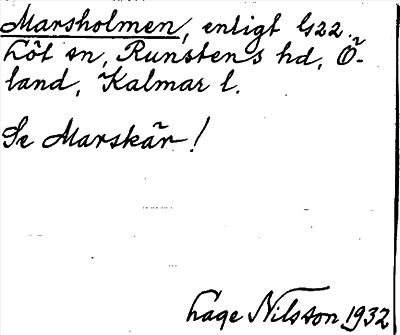 Marsholmen, enligt G22.
Löt sn, Runstens hd, Ö-
land, Kalmar l.
Se Marskär!
Lage Nilsson 1932